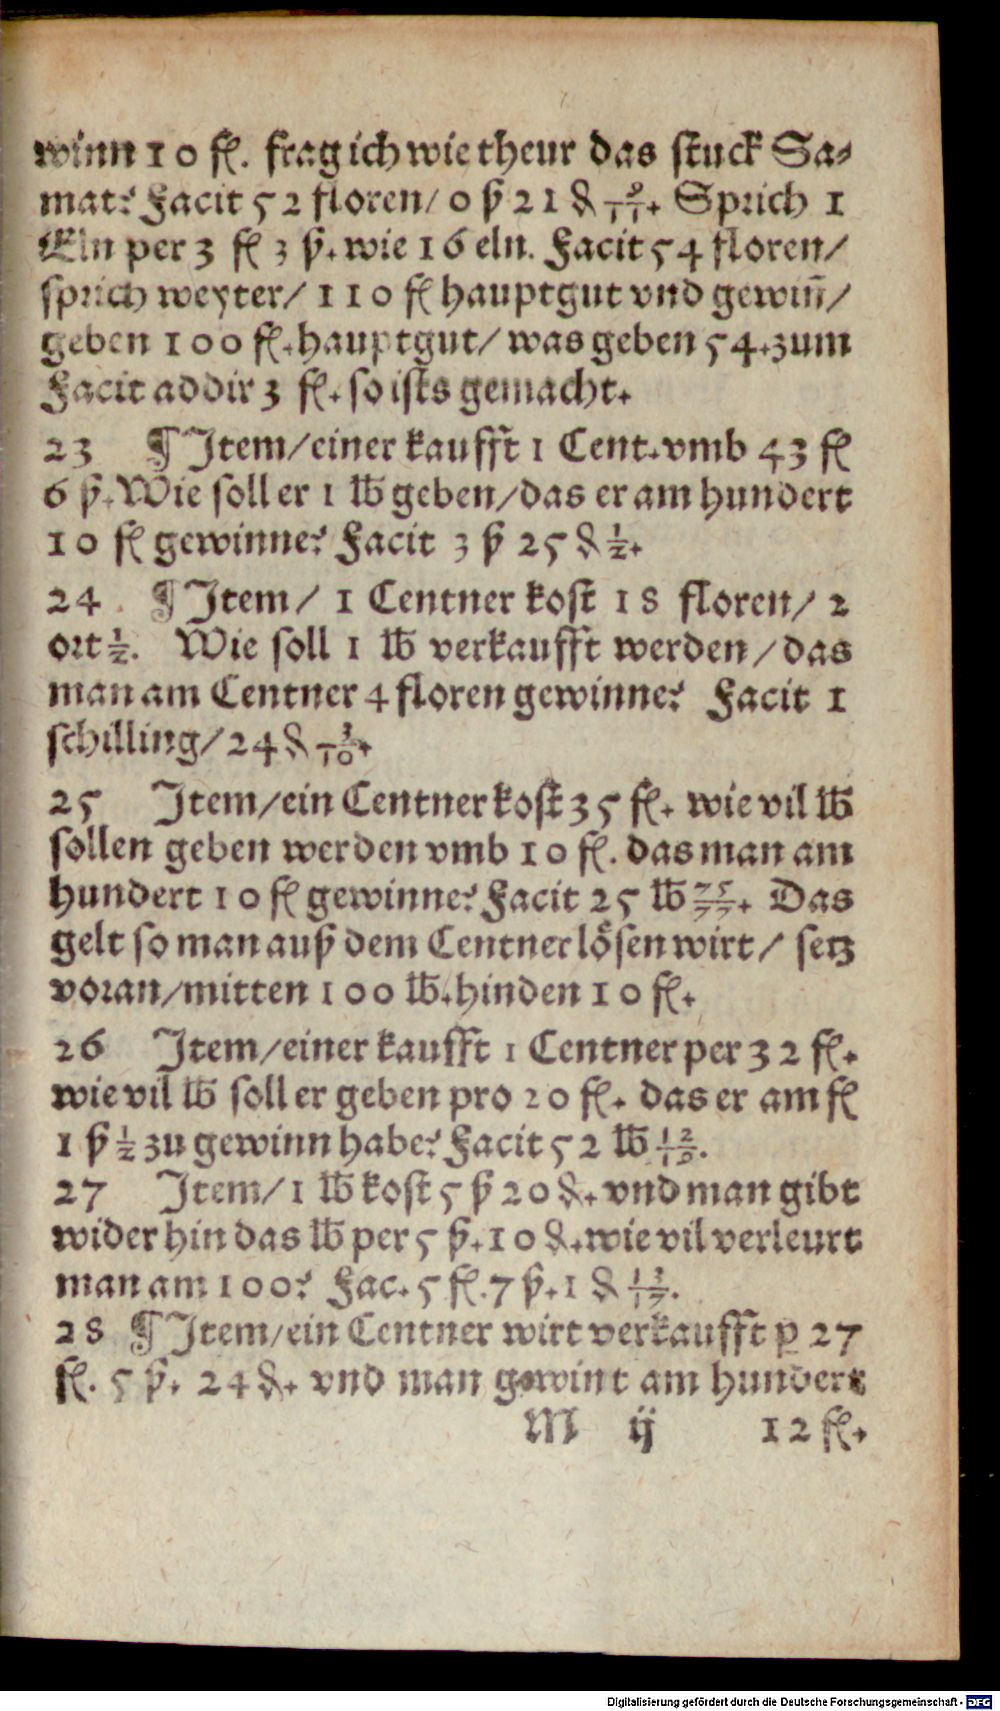 winn 10 fl. frag ich wie theur das stuck Sa⸗
mat? Facit 52 floren/ 0 ß 21 ₰ 9/11. Sprich 1
Eln per 3 fl 3 ß. wie 16 eln. Facit 54 floren/
sprich weyter/ 110 fl hauptgut vnd gewiñ/
geben 100 fl. hauptgut/ was geben 54. zum
Facit addir 3 fl. so ists gemacht.
23 ¶ Item/ einer kaufft 1 Cent. vmb 43 fl
6 ß. Wie soll er 1 ℔ geben/ das er am hundert
10 fl gewinne? Facit 3 ß 25 ₰ 1/2.
24 ¶ Item/ 1 Centner kost 18 floren/ 2
ort 1/2. Wie soll 1 ℔ verkaufft werden/ das
man am Centner 4 floren gewinne? Facit 1
schilling/ 24 ₰ 3/10.
25 Item/ ein Centner kost 35 fl. wie vil ℔
sollen geben werden vmb 10 fl. das man am
hundert 10 fl gewinne? Facit 25 ℔ 75/77. Das
gelt so man auß dem Centner lösen wirt/ setz
voran/ mitten 100 ℔. hinden 10 fl.
26 Item/ einer kaufft 1 Centner per 32 fl.
wie vil ℔ soll er geben pro 20 fl. das er am fl
1 ß 1/2 zu gewinn habe? Facit 52 ℔
27 Item/ 1 ℔ kost 5 ß 20 ₰. vnd man gibt
wider hin das ℔ per 5 ß. 10 ₰. wie vil verleurt
man am 100? Fac. 5 fl. 7 ß. 1 ₰ 13/17.
28 ¶ Item/ ein Centner wirt verkaufft ꝑ 27
fl. 5 ß. 24 ₰. vnd man gewint am hundert
M ij 12 fl.
Digitalisierung gefördert durch die Deutsche Forschungsgemeinschaft - DFG